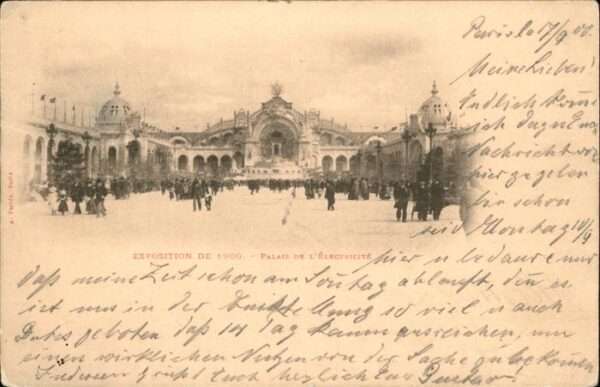 Paris le 17/9 00.
Meine Lieben!
Endlich komme
ich dazu Euch
Nachricht von
hier zu geben
bin schon
seit Montag 10/9
EXPOSITION DE 1900. - PALAIS DE L'ÉLECTRICITÉ
hier u bedaure nur
daß meine Zeit schon am Sonntag abläuft, denn es
ist uns in der Ausstellung so viel u auch
Gutes geboten daß 14 Tag kaum ausreichen, um
einen wirklichen Nutzen von der Sache zu bekommen
Indessen grüßt Euch herzlichst Gustav